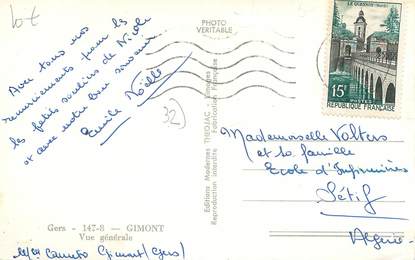 Avec tous nos
remerciements pour les
petits souliers de Nicole
et avec notre bon souvenir
Emile Noëlle
32
PHOTO
VERITABLE
Editions Modernes THEOJAC - Limoges
Reproduction interdite Fabrication Française
LE QUESNOY (NORD)
15F
POSTES
REPUBLIQUE FRANÇAISE
Mademoiselle Valters
et la famille
Ecole d'Infirmières
Sétif
Algérie
Gers - 147-8 - GIMONT
Vue générale
Gimont (Gers)